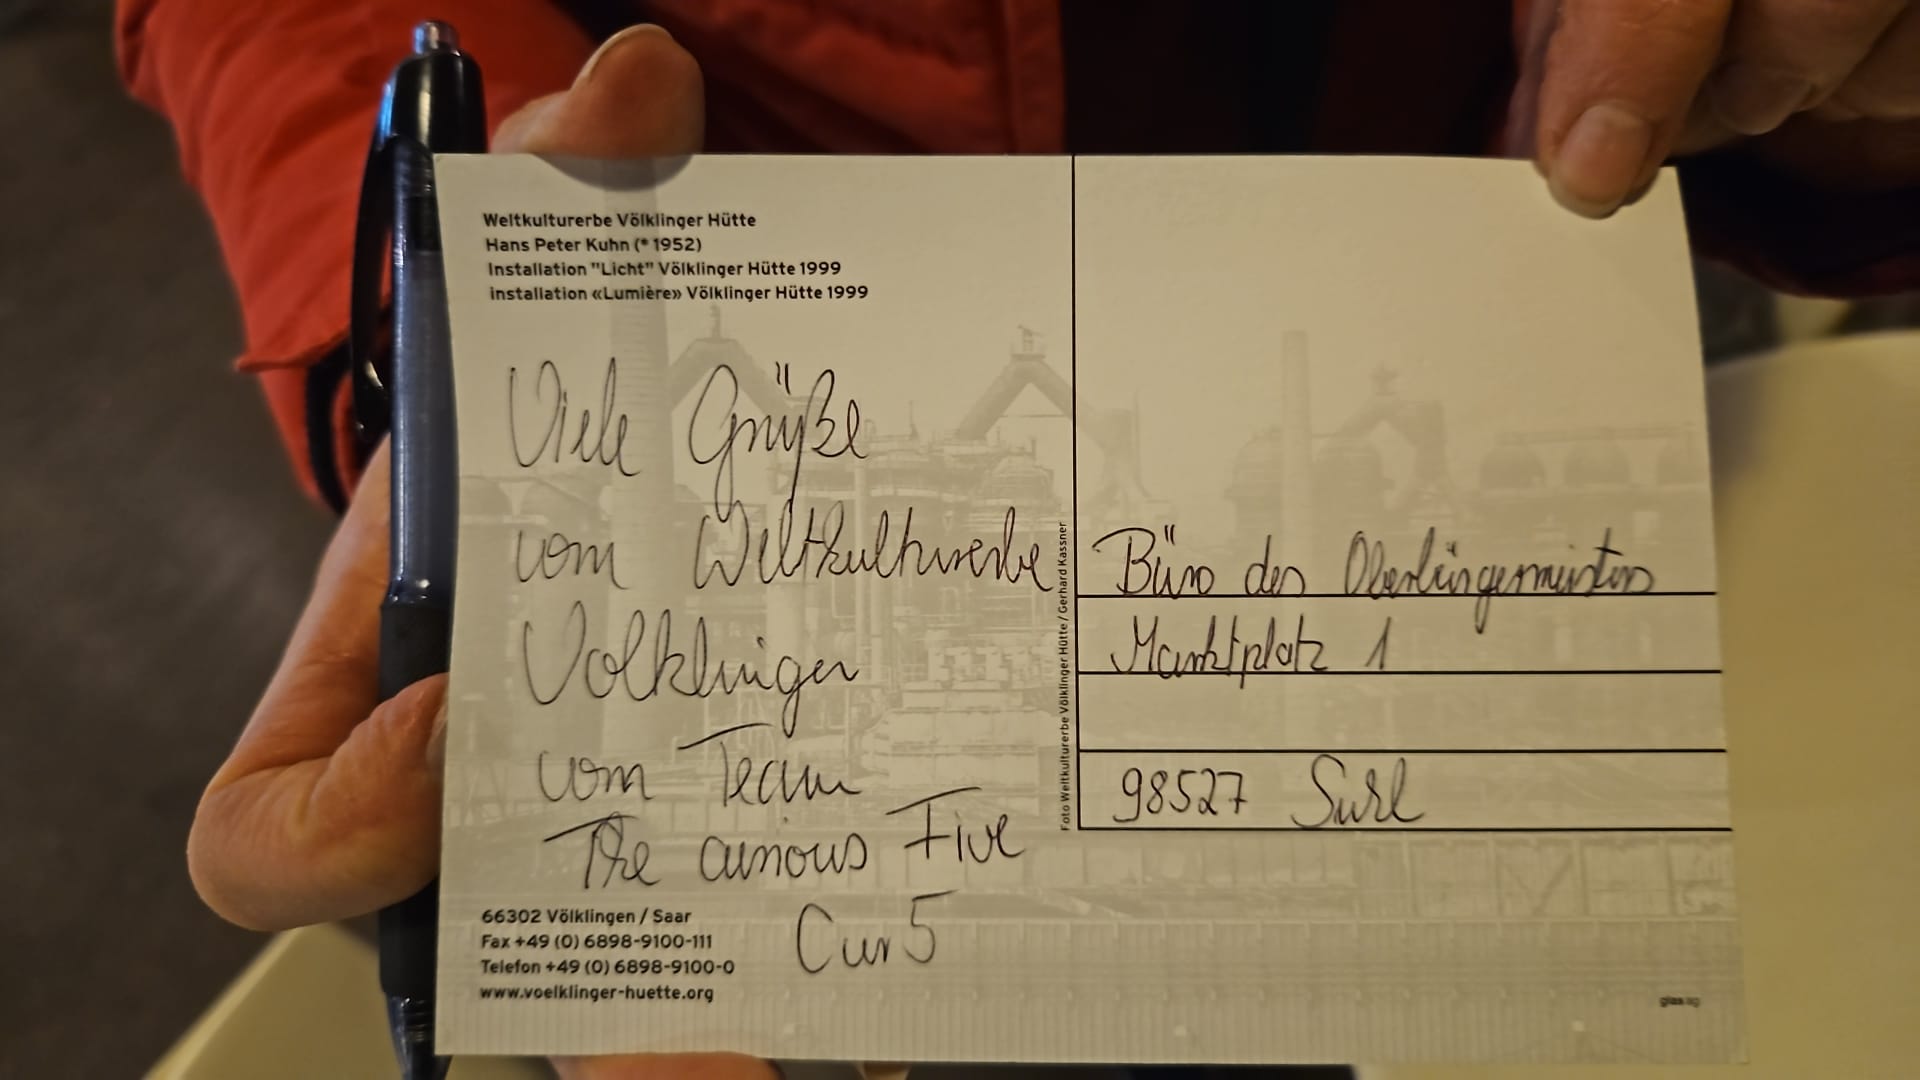 Weltkulturerbe Völklinger Hütte
Hans Peter Kuhn (* 1952)
Installation "Licht" Völklinger Hütte 1999
installation «Lumière» Völklinger Hütte 1999
Viele Grüße
vom Weltkulturerbe
Volklinger
vom Team
The curious Five
Cur5
66302 Völklingen / Saar
Fax +49 (0) 6898-9100-111
Telefon +49 (0) 6898-9100-0
www.voelklinger-huette.org
Foto Weltkulturerbe Völklinger Hütte / Gerhard Kassner
Büro des Oberbürgermeisters
Marktplatz 1
98527 Suhl
glas ag